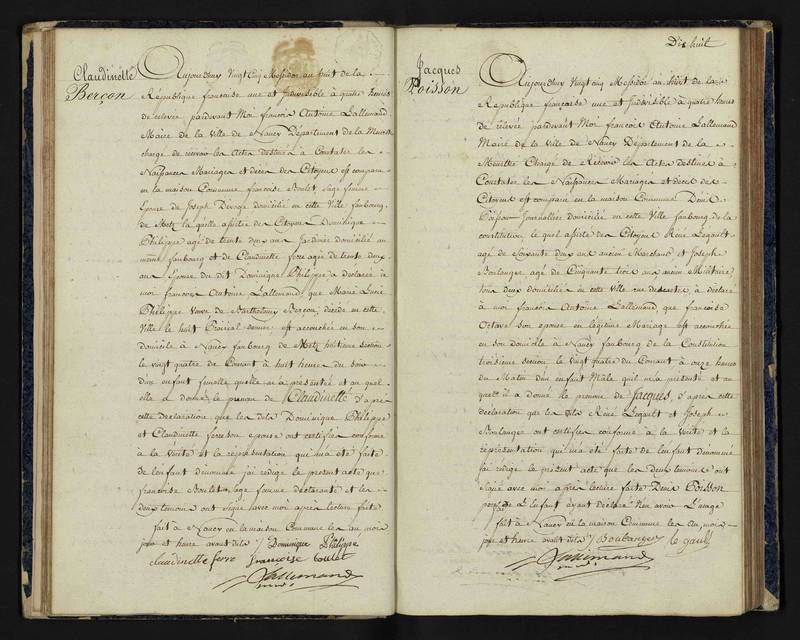 Claudinette
Berçon
Aujourdhuy Vingt Cinq Messidor an huit de la
République francaise une et Indivisible à quatre heures
de relevée pardevant Moi francois Antoine Lallemand
Maire de la Ville de Nancy Département de la Meurthe
chargé de recevoir les Actes destinés à Constater les
Naissances Mariages et décès des Citoyens est comparu
en la maison Commune francoise Boulet, Sage femme
Epouse de Joseph domicilié en cette Ville faubourg
de Metz la quelle assistée des Citoyens Dominique
Philippe agé de trente deux ans Jardinier domicilié au
même faubourg et de Claudinette ferre agée de trente deux
ans Epouse du dit Dominique Philippe a déclaré à
moi francois Antoine Lallemand que Marie Lucie
Philippe Veuve de Barthelemy Berçon, décédé en cette
Ville le huit Prairial dernier est accouchée en son
domicile à Nancy faubourg de Metz huitieme section
le vingt quatre du Courant à huit heures du soir
d'un enfant femelle quelle m'a présentée et au quel
elle a donné le prenom de Claudinette d'après
cette declaration que les dits Dominique Philippe
et Claudinette ferre son epouse ont certifiés conforme
à la Verité et la représentation qui m'a été faite
de l'enfant denommé j'ai rédigé le present acte que
francoise Boulet sage femme declarante et les
deux temoins ont signé avec moi après lecture faite
fait à Nancy en la maison Commune les an mois
jour et heure avant dits / Dominique Philippe
claudinette ferre francoise boulet
Lallemand
Dix huit
Jacques
Poisson
Aujourdhuy Vingt cinq Messidor an huit de la
République francaise une et Indivisible à quatre heures
de relevée pardevant Moi francois Antoine Lallemand
Maire de la Ville de Nancy Département de la
Meurthe Chargé de Recevoir les Actes destinés à
Constater les Naissances Mariages et décès des
Citoyens est comparu en la maison Commune Denis
Poisson Journallier domicilié en cette Ville faubourg de la
constitution le quel assisté des Citoyens René Legault
agé de Soixante deux ans ancien Marchand et Joseph
Boulanger agé de Cinquante trois ans ancien Militaire
tous deux domiciliés en cette ville rue descartes, à déclaré
à moi francois Antoine Lallemand que francoise
Octave son epouse en légitime Mariage est accouchée
en son domicile à Nancy faubourg de la Constitution
troisieme section, le vingt quatre du Courant à onze heures
du Matin d'un enfant Mâle qu'il m'a présenté et au
quel il a donné le prenom de Jacques, d'après cette
declaration que les dits René Legault et Joseph
Boulanger ont certifiés conforme à la Verité et la
représentation qui m'a été faite de l'enfant denommé
jai rédigé le présent acte que les deux temoins ont
signé avec moi après lecture faite Denis Poisson
pere de l'Enfant ayant declaré n'en avoir l'usage
fait à Nancy en la maison Commune les an mois
jour et heure avant dits / Boulanger le gault
Lallemand